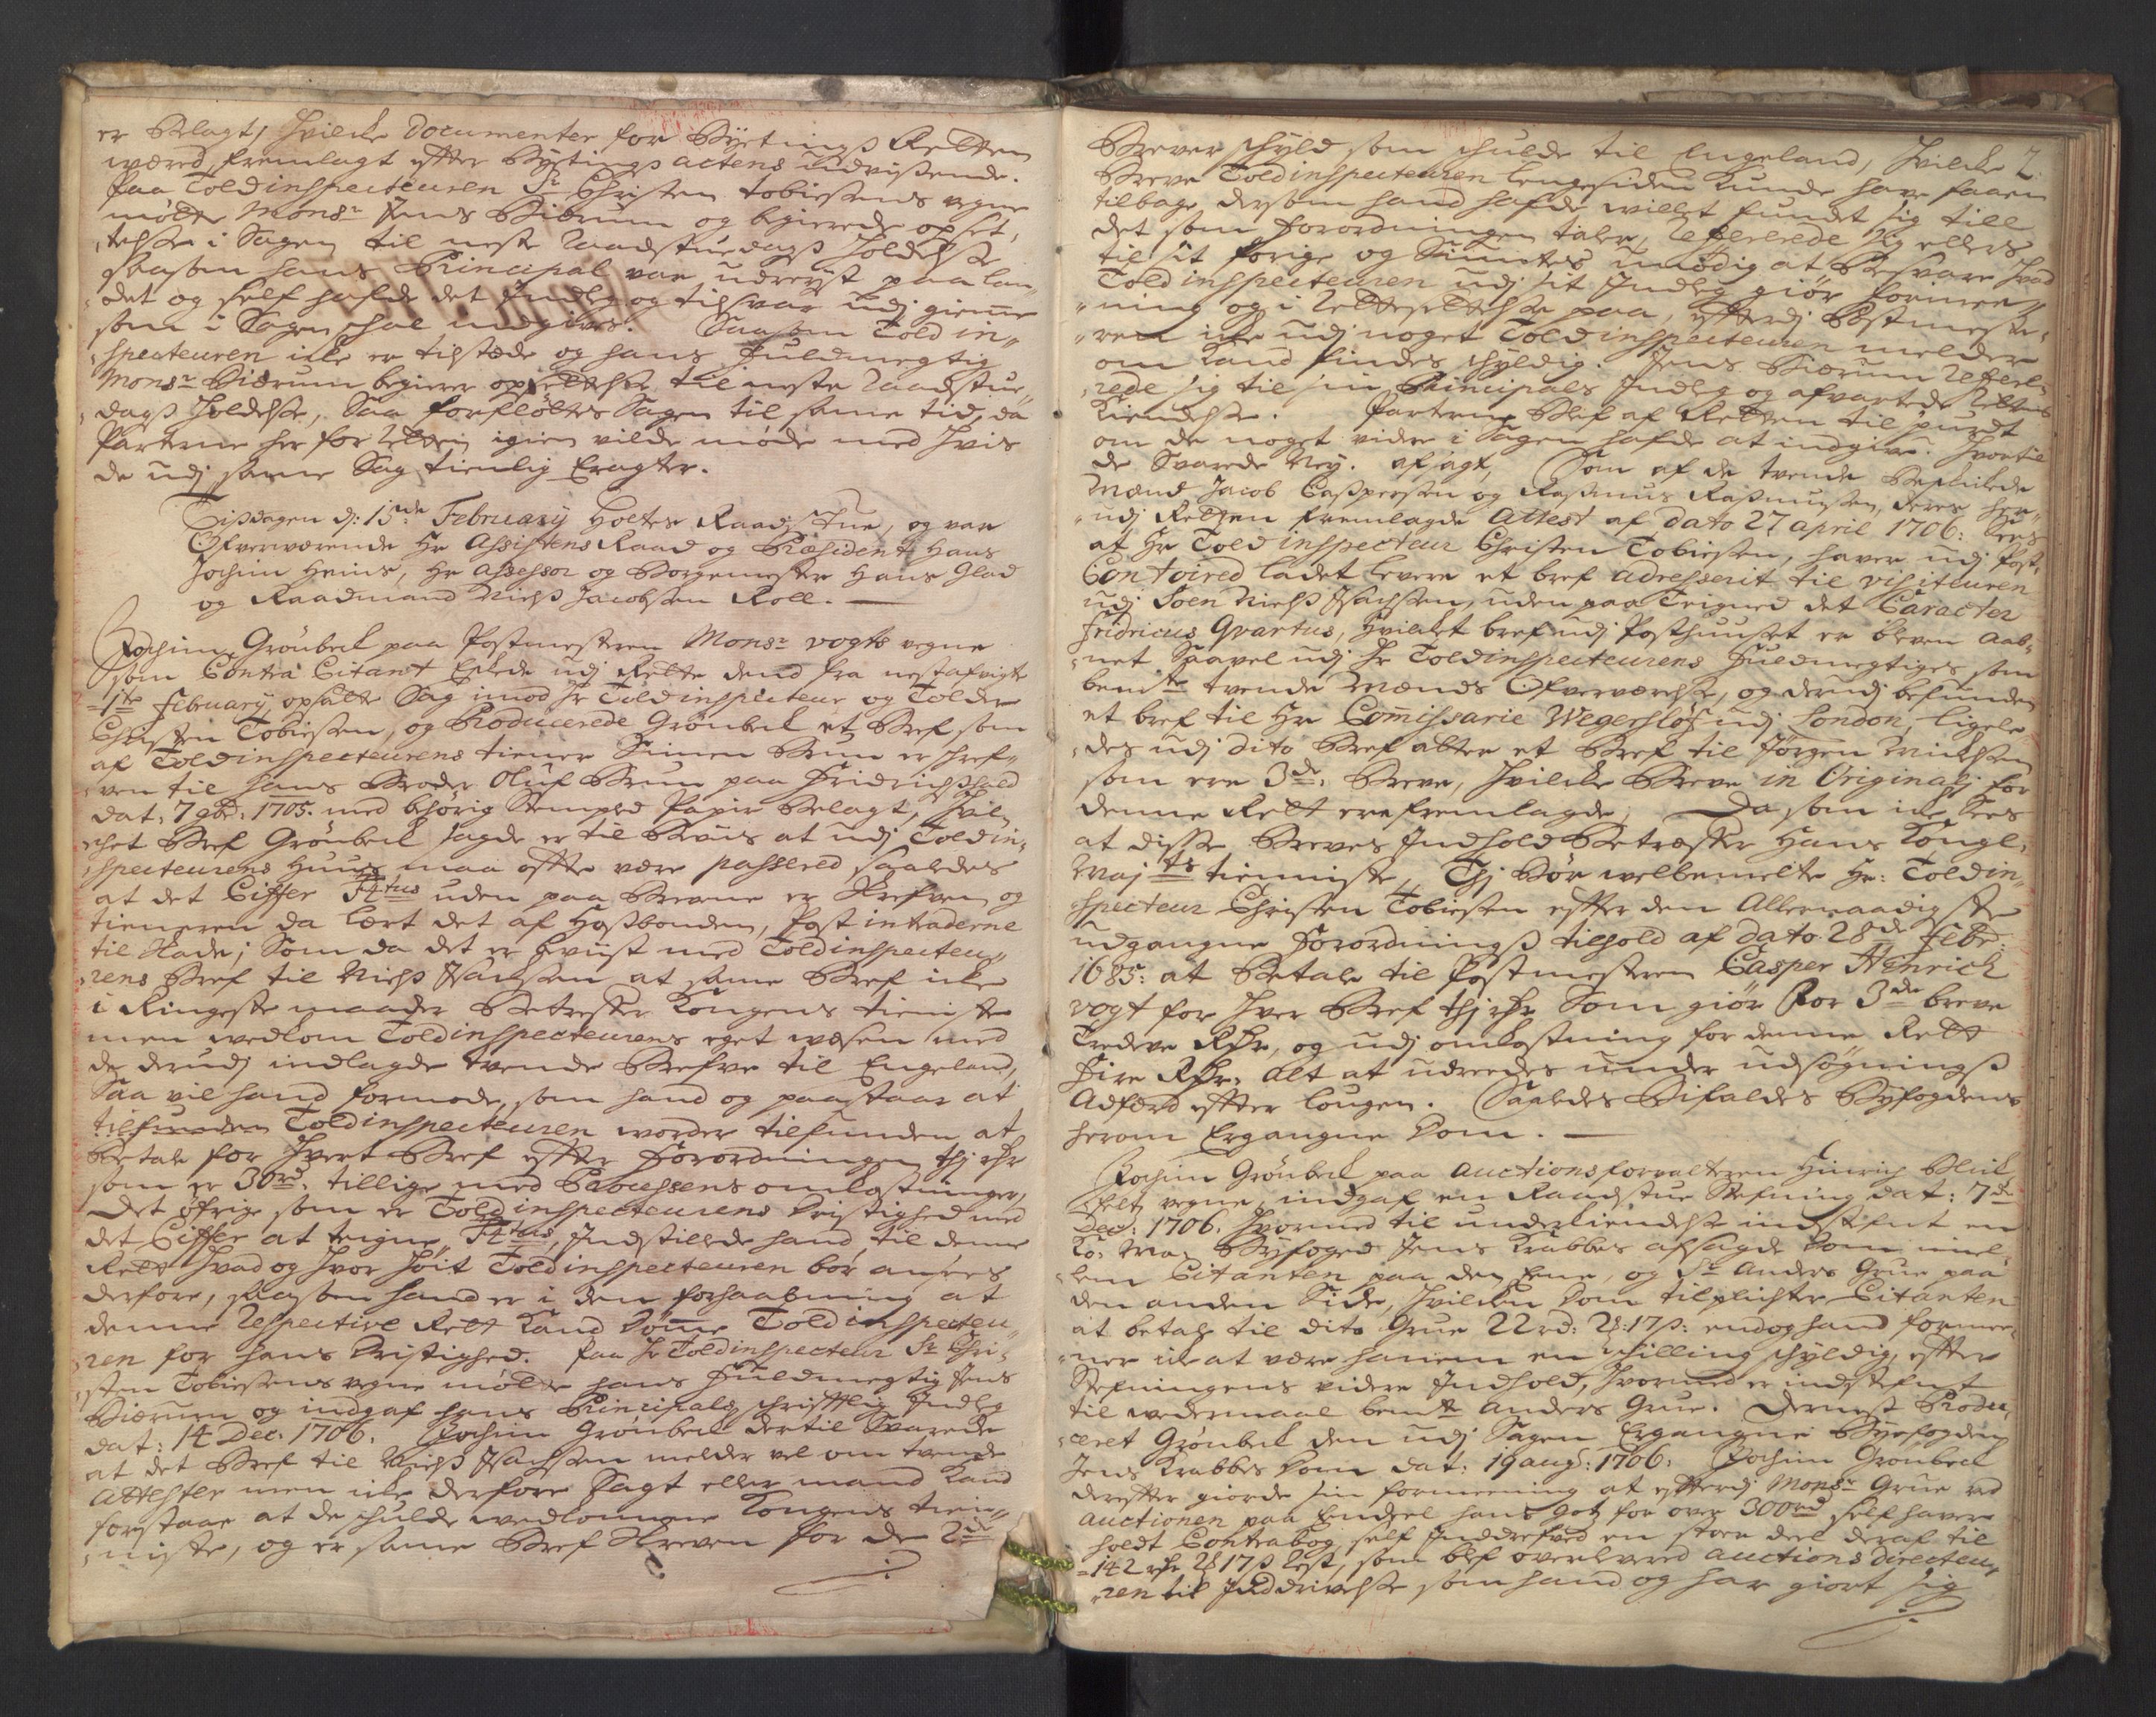 er Belagt, hvilcke Documenter for Byetings Retten
wæred fremlagt efter Byetings actens udvisende.
Paa Toldinspecteuren Sr Christen Tobiesens vegne
møtte Monsr Jens Biørum og begierede opset-
telse i Sagen til neste Raadstuedags holdelse
saasom hans Principal var udreyst paa lan-
det og self hafde det Indleg og tilsvar udj giemme
som i Sagen schal indgives. Saasom Told in-
specteuren icke er tilstæde og hans fuldmegtig
Monsr Biørum begierer opsettelse til neste Raadstue
dags holdelse, Saa forfløttes Sagen til same tid, da
Parterne her for Retten igien vilde møde med hvis
de udj same Sag tienlig Eragter.
Tisdagen d: 15de February holtes Raadstue, og var
Ofverværende Hr Assistens Raad og Præsident Hans
Jochim Heins, Hr Assessor og Borgemester Hans Glad
og Raadmand Niels Jacobsen Roll.
Jochim Grönbeck paa Postmesteren Monsr Vogts vegne
som Contra Citant Eskede udj Rette dend fra nestafvigte
1te February opsatte Sag imod Hr Toldinspecteur og Tolder
Christen Tobiesen, og Producerede Grönbeck et Bref som
af Toldinspecteurens tiener Simen Brun er schref-
ven til hans Broder Oluf Brun paa Fridrichshald
dat: 7 9br: 1705. med behörig Stempled Papir Belagt, hvil-
chet Bref Grönbeck sagde er til Beviis at udj Toldin-
specteurens Huus maa ofte være passered saaledes
at det Ciffer F4tus uden paa Brevene er Skrefven og
tieneren da lært det af Hosbonden, Post intraderne
til Skade; Som da det er beviist med Toldinspecteu-
rens Bref til Niels Isachsen at same Bref icke
i Ringeste maader Betreffer Kongens tieniste
men wedkom Toldinspecteurens eget wæsen med
de derudj indlagde tvende Brefve til Engeland,
Saa vil hand formode, som hand og paastaar at
tilfunden Toldinspecteuren worder tilfunden at
Betale for hvert Bref efter Forordningen thj rdr
som er 30rd: tillige med Processens omkostninger,
Det öfrige som er Toldinspecteurens Dristighed med
det Ciffer at teigne F4tus, Indstillede hand til denne
Rett hvad og hvor höit Toldinspecteuren bör ansees
derfore, saasom hand er i den forhaabning at
denne Respective Rett kand döme Toldinspecteu-
ren for hans Dristighed. Paa Hr Toldinspecteur Sr Chri-
sten Tobiesens vegne mötte hans Fuldmegtig Jens
Biørum og indgaf hans Principals schriftlig Indleg
dat: 14 Dec: 1706. Jochim Grönbeck dertil Svarede
at det Bref til Niels Isachsen melder vel om tvende
Attester men icke derfore Sagt eller mand kand
forstaae at de schulde wedkomme Kongens tien-
niste, og er same Bref Skreven for de 2de
2
Brever schyld som schulde til Engeland, hvilcke
Breve Toldinspecteuren lengesiden kunde have faaen
tilbage dersom hand hafde willet fundet sig till
det som Forordningen taler, Refererede sig ellers
til sit forige og Simotes unödig at Besvare hvad
Toldinspecteuren udj sit Indleg giör formee-
ning og i Rettesettelse paa, efterdj Postmeste-
ren icke udj noget Toldinspecteuren melder
om kand findes schyldig. Jens Biørum Refere-
rede sig til sin Principals Indleg og afvartede Rettens
kiendelse. Parterne Blef af Retten tilspurdt
om de noget videre i Sagen hafde at indgive. Hvortil
de Svarede Ney. Afsagt, Som af de tvende Beskikede
Mænd Jacob Caspersen og Rasmus Rasmusen, deres her
udj Retten fremlagde Attest af dato 27 april 1706: Sees
at Hr Told inspecteur Christen Tobiesen, haver udj Post-
Contoired ladet levere et bref adresserit til visiteuren
udj Soen Niels Isachsen, uden paa Teigned det Caracter
Fridricus Qvartus, hvilcket bref udj Posthuuset er bleven aab-
net Saavel udj Hr Toldinspecteurens Fuldmegtiges som
bemte tvende Mænds Ofverværelse, og derudj befunden
et bref til Hr Comissarie Wegerslöf udj London, ligele
des udj dito Bref atter et Bref til Jörgen Michelsen
som ere 3de Breve, hvilcke Breve in Originalj for
denne Rett ere fremlagde, Da som icke Sees
at disse Breves Indhold Betreffer Hans Kongl:
Majts tienniste, Thj bör welbemelte Hr: Toldin-
specteur Christen Tobiesen efter den Allernaadigste
udgangne Forordnings tilhold af dato 28de Febr:
1685: at Betale til Postmesteren Casper Henrich
Vogt for hver Bref thj rdr Som giör for 3de breve
Tredeve Rdr, og udj omkostning for denne Rett
Fire Rdr: alt at udreedes under udsögnings
Adferd efter Lougen. Saaledes Bifaldes Byfogdens
herom Ergangne Dom.
Jochim Grönbeck paa Auctionsforvalteren Hinrich
vegne, indgaf en Raadstue Stefning dat: 7de
Dec: 1706. hvormed til underkiendelse indstefnt en
Ko: May Byfoged Jens Krabbes afsagde Dom imel-
lem Citanten paa den Ene, og Sr Anders Grue paa
den anden Side, hvilcken Dom tilplichter Citanten
at betale til dito Grue 22rd: 2: 17s: endog hand formee-
ner icke at være hanem en schilling schyldig, efter
Stefningens videre Indhold, hvormed er indstefnt
til wedermaal bemte Anders Grue. Dernest Produ-
ceret Grönbeck den udj Sagen Ergangne Byefogden
Jens Krabbes Dom dat: 19 aug: 1706: Jochim Grönbeck
derefter giorde sin formeening at efterdj Monsr Grue ved
auctionen paa Endeel hans gotz for over 300rd self haver
holdt Contrabog, self Inddrefved en stoer deel deraf til
142 rdr 2 17s Rest, som blef overlevered Auctions directeu-
ren til Inddrivelse som hand og har giort sig